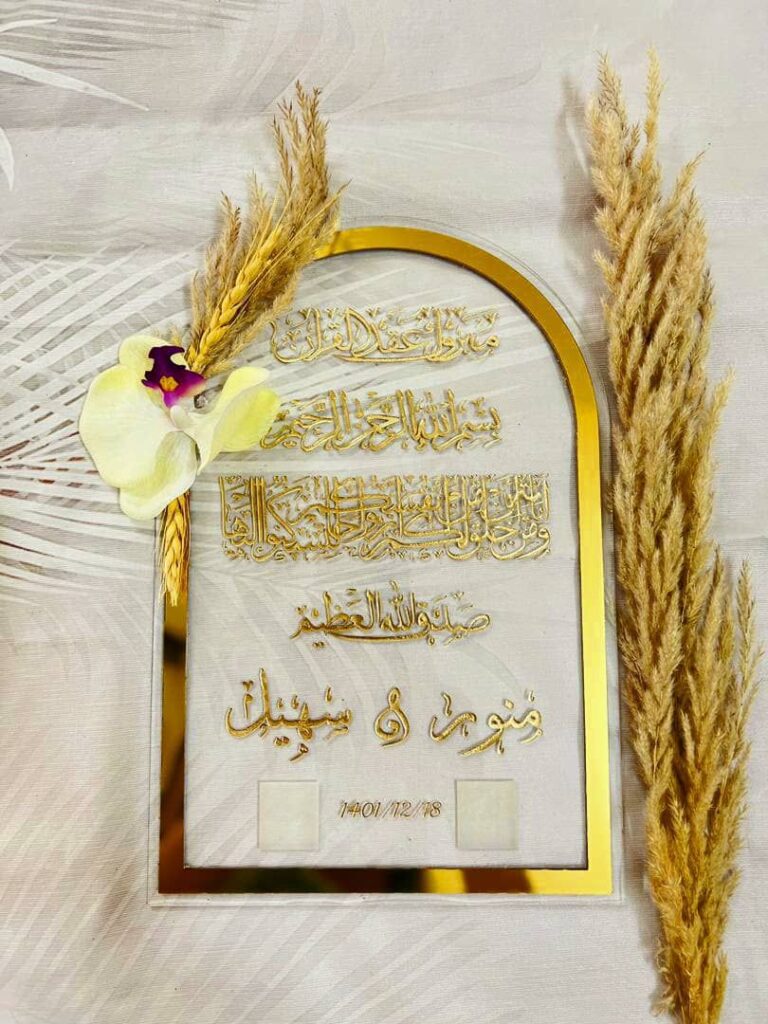 مبروك عقد القران
بسم الله الرحمن الرحيم
ومن آياته أن خلق لكم من أنفسكم أزواجا لتسكنوا إليها
صدق الله العظيم
منور و سهيل
1401/12/18